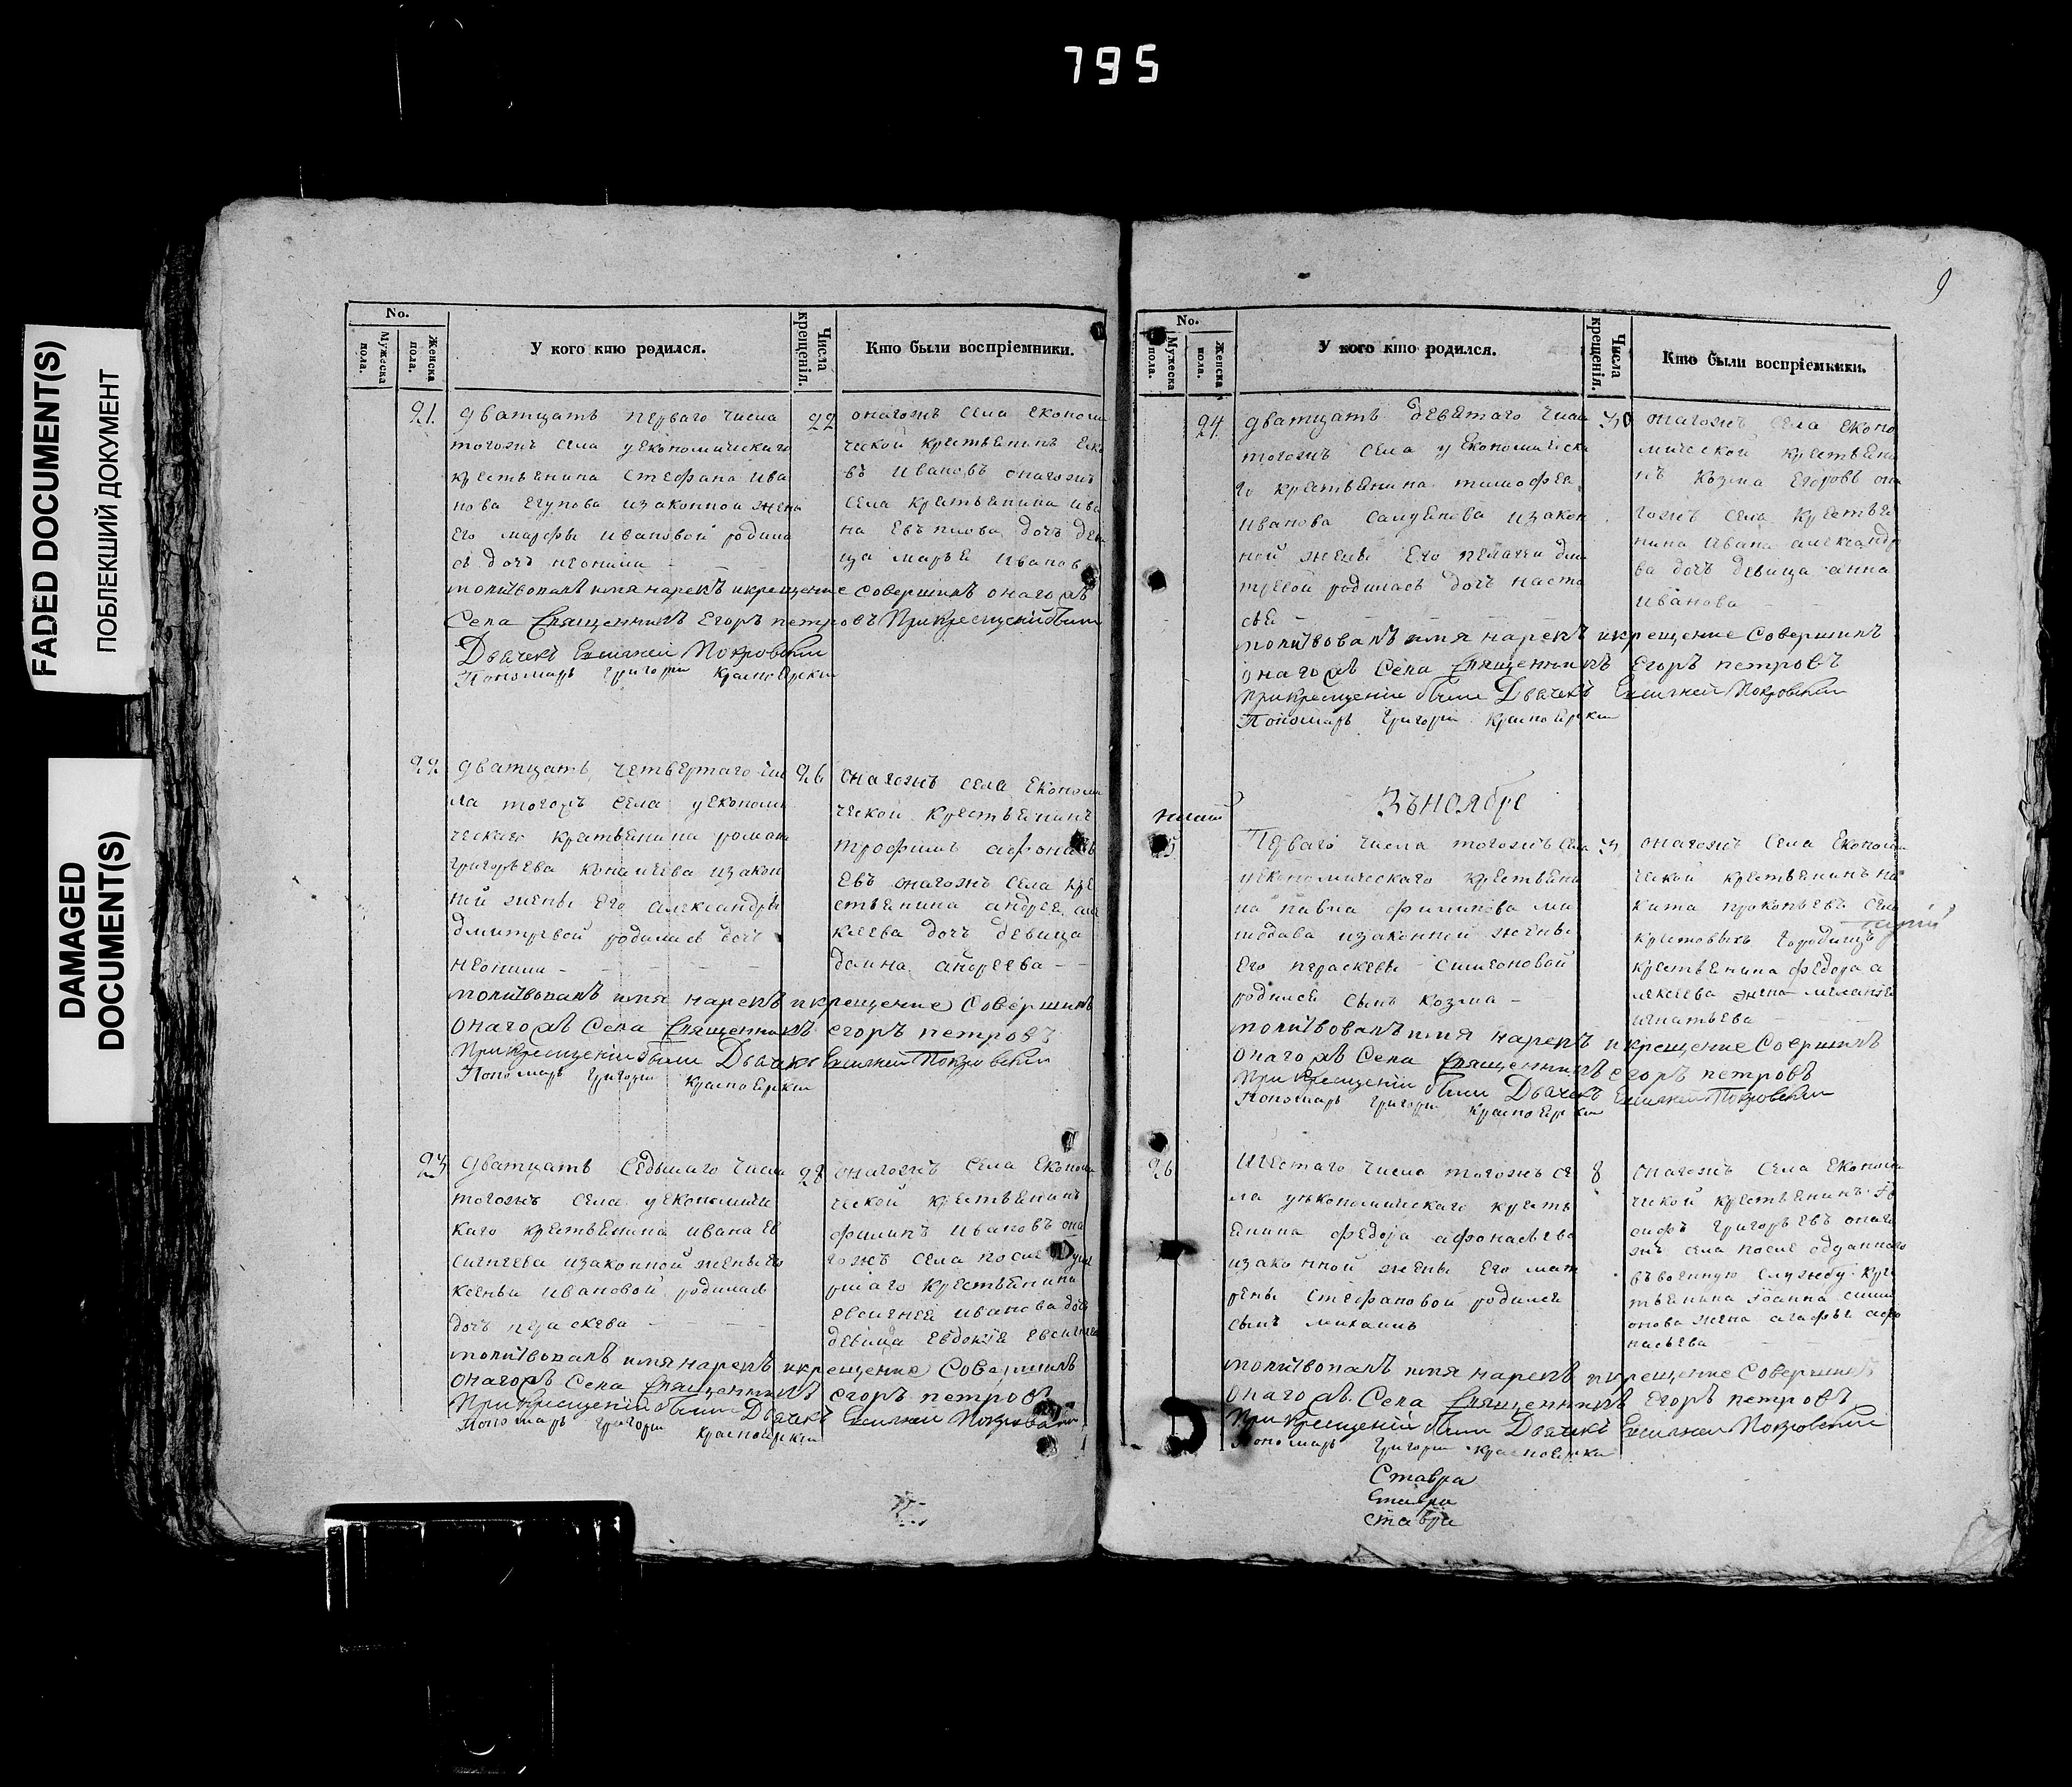 795
FADED DOCUMENT(S)
ПОБЛЕКШИЙ ДОКУМЕНТ
DAMAGED
DOCUMENT(S)
No.
Мужеска пола.
Женска пола.
У кого кто родился.
Числа крещенія.
Кто были воспріемники.
21.
дватцать перваго числа
тогожъ села уекономическаго
крестьянина Стефана ива
нова Егупова изаконной жены
Его марфы ивановой родила
сь дочь неонила
22
онагожъ села економи
ческой крестьянинъ
въ ивановъ онагожъ
села крестьянина ива
на дочь деви
ца марья иванов
молитвовалъ имя нарекъ икрещение совершилъ онагожъ
Села Священникъ Егоръ петровъ Прикрещении были
Дьячекъ Евсигней Покровский
Пономарь григорий Красноярский
22.
дватцать четвертаго чис
ла тогожъ села уекономи
ческаго крестьянина романа
григорьева изакон
ной жены Его александры
дмитревой родилась дочь
неонила
26
онагожъ села економи
ческой крестьянинъ
трофимъ афонась
евъ онагожъ села кре
стьянина андрея але
ксеева дочь девица
домна андреева
молитвовалъ имя нарекъ икрещение совершилъ
онагожъ Села Священникъ егоръ петровъ
Прикрещении были Дьячекъ Евсигней Покровский
Пономарь григорий Красноярский
23
дватцать седьмаго числа
тогожъ села уекономиче
скаго крестьянина ивана ев
сигнеева изаконной жены его
ксеньи ивановой родилась
дочь параскева
28
онагожъ села економи
ческой крестьянинъ
филипъ ивановъ она
гожъ села после уме
ршаго крестьянина
евсигнея иванова дочь
девица евдокия евсигне
молитвовалъ имя нарекъ икрещение совершилъ
онагожъ Села Священникъ егоръ петровъ
Прикрещении были Дьячекъ Евсигней Покровский
Пономарь григорий Красноярский
9
No.
Мужеска пола.
Женска пола.
У кого кто родился.
Числа крещенія.
Кто были воспріемники.
24
дватцать девятаго числа
тогожъ села уекономическа
го крестьянина тимофея
иванова изакон
ной жены Его пелагеи дми
тревой родилась дочь наста
сья
30
онагожъ села еконо
мической крестьяни
нъ козма Егоровъ она
гожъ села крестья
нина ивана александро
ва дочь девица анна
иванова
молитвовалъ имя нарекъ икрещение совершилъ
онагожъ Села Священникъ Егоръ петровъ
Прикрещении были Дьячекъ Евсигней Покровский
Пономарь григорий Красноярский
въ ноябре
25
Перваго числа тогожъ села
уекономическаго крестьяни
на павла филипова
изаконной жены
Его параскевы симеоновой
родился сынъ козма
3
онагожъ села економи
ческой крестьянинъ ни
кита прокопьевъ села
крестовыхъ городищъ
крестьянина федора а
лексеева жена меланья
игнатьева
молитвовалъ имя нарекъ икрещение совершилъ
онагожъ Села Священникъ егоръ петровъ
Прикрещении были Дьячекъ Евсигней Покровский
Пономарь григорий Красноярский
26
Шестаго числа тогожъ се
ла уекономическаго кресть
янина федора афонасьева
изаконной жены Его мат
рены стефановой родился
сынъ михаилъ
8
онагожъ села економи
ческой крестьянинъ Iо
сифъ григорьевъ онаго
жъ села после отданнаго
въ военную службу кре
стьянина iоанна сими
онова жена агафья афо
насьева
молитвовалъ имя нарекъ икрещение совершилъ
онагожъ Села Священникъ Егоръ петровъ
Прикрещении были Дьячекъ Евсигней Покровский
Пономарь григорий Красноярский